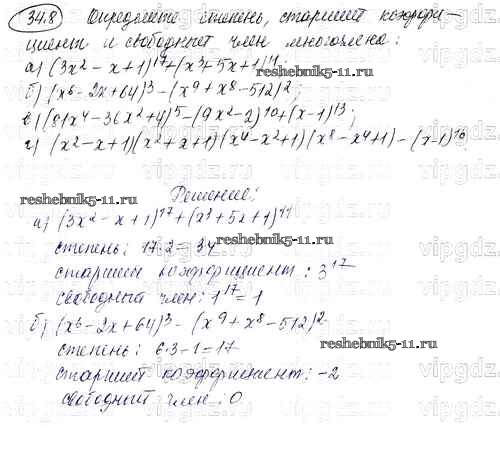 34.8 Определите степень, старший коэффи-
циент и свободный член многочлена:
а) (3x² - x + 1)¹⁷ + (x³ + 5x + 1)¹¹
б) (x⁶ - 2x + 64)³ - (x⁹ + x⁸ - 512)²;
в) (81x⁴ - 36x² + 4)⁵ - (9x² - 2)¹⁰ + (x - 1)¹³;
г) (x² - x + 1)(x² + x + 1)(x⁴ - x² + 1)(x⁸ - x⁴ + 1) - (x - 1)¹⁶
Решение:
а) (3x² - x + 1)¹⁷ + (x³ + 5x + 1)¹¹
степень: 17·2 = 34
старший коэффициент: 3¹⁷
свободный член: 1¹⁷ = 1
б) (x⁶ - 2x + 64)³ - (x⁹ + x⁸ - 512)²
степень: 6·3 - 1 = 17
старший коэффициент: -2
свободный член: 0
reshebnik5-11.ru
reshebnik5-11.ru
reshebnik5-11.ru
reshebnik5-11.ru
vipgdz